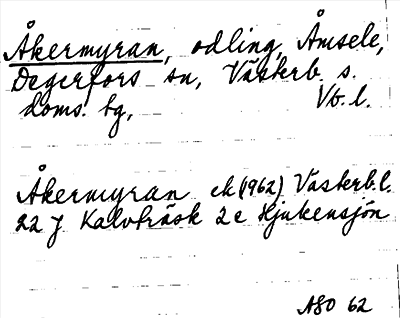 Åkermyran, odling, Åmsele,
Degerfors sn, Västerb. s.
doms. bg, Vb. l.
Åkermyran ek (1962) Västerb. l.
22 J Kalvträsk 2 c Hjukensjön
ÅSO 62